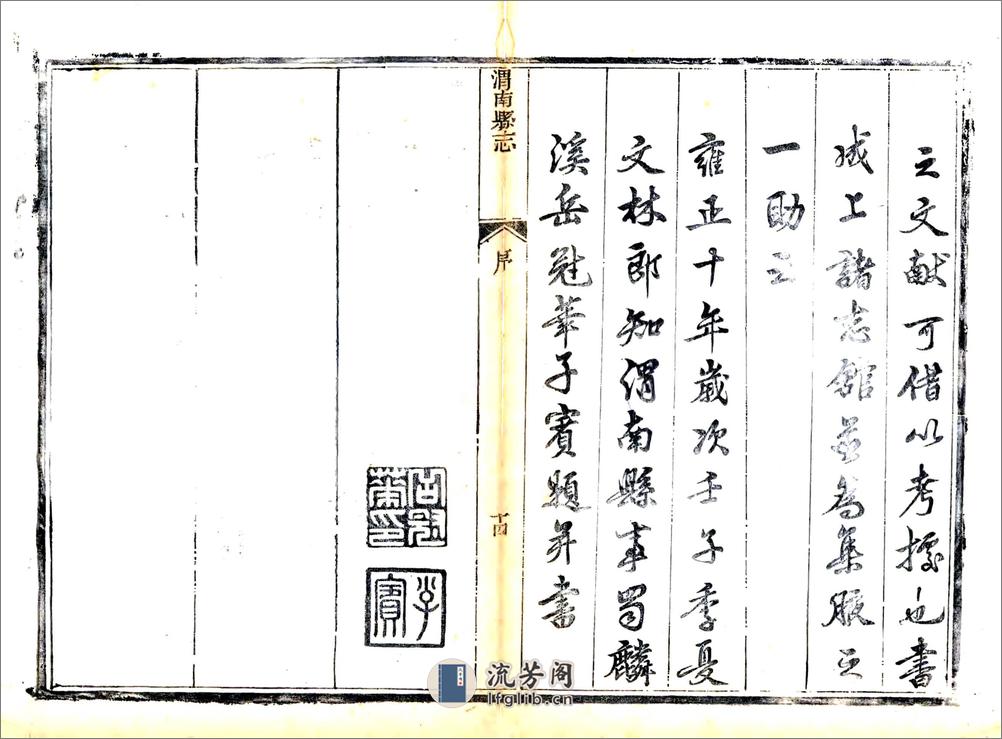 之文献可借以考據也書
成上諸志館並為集腋之
一助云
雍正十年歲次壬子季夏
文林郎知渭南縣事蜀麟
溪岳冠華子賓題并書
渭南縣志
序
十四
岳冠華印
字子賓
流芳阁
lfglib.cn